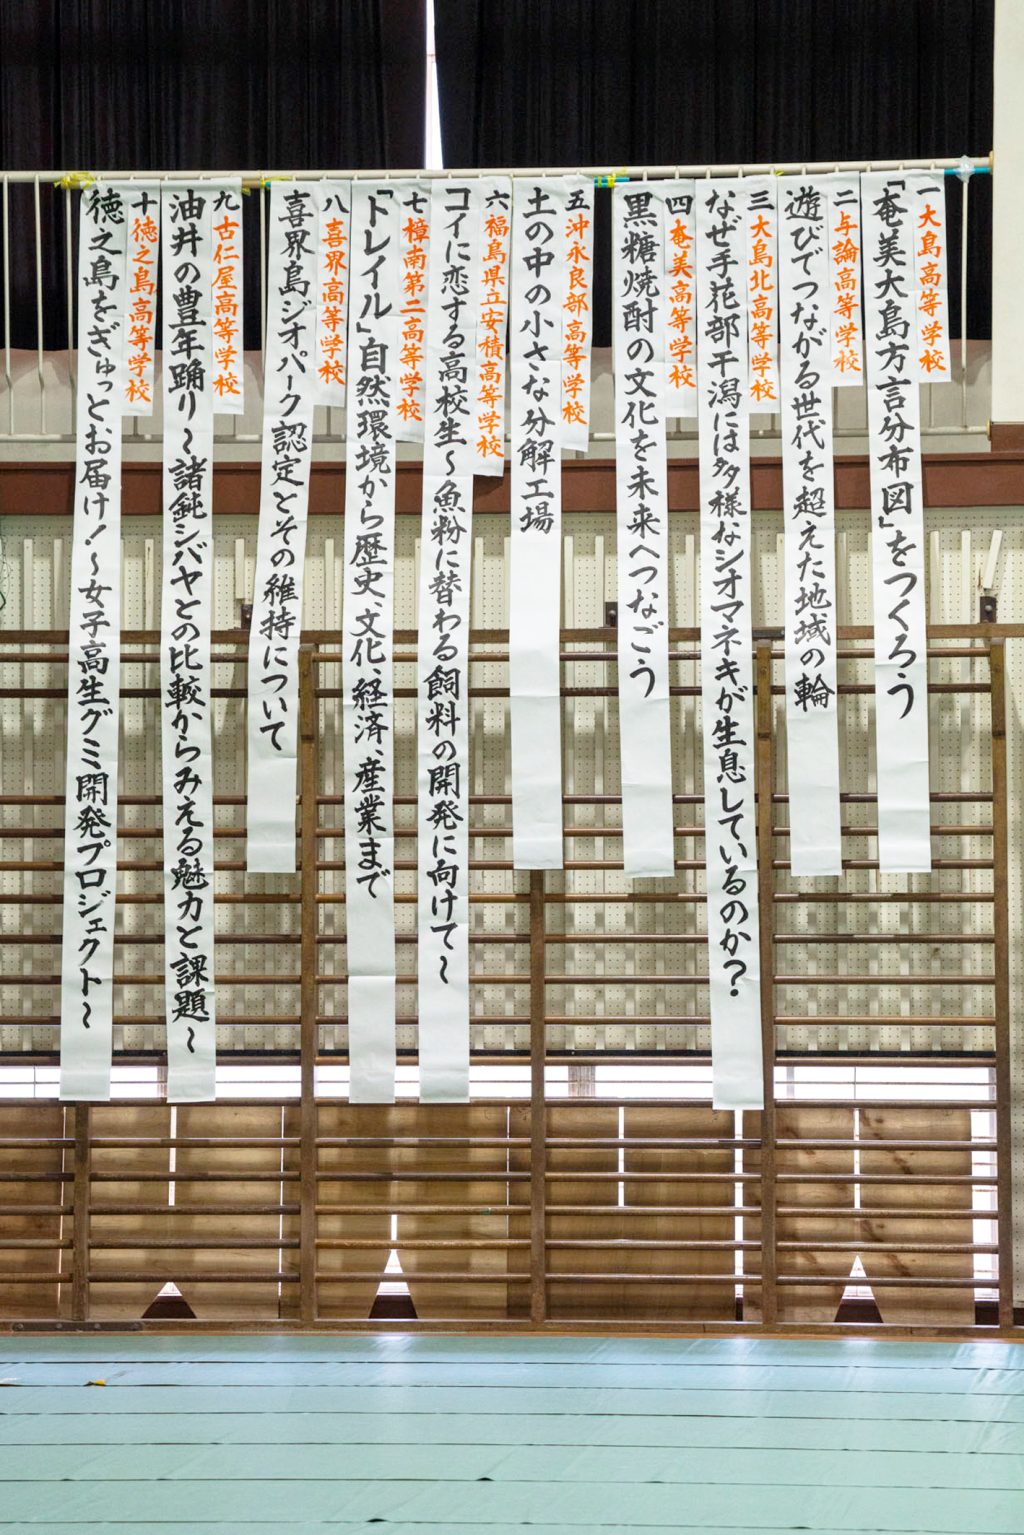 一 大島高等学校
「奄美大島方言分布図」をつくろう
二 与論高等学校
遊びでつながる世代を超えた地域の輪
三 大島北高等学校
なぜ手花部干潟には多様なシオマネキが生息しているのか?
四 奄美高等学校
黒糖焼酎の文化を未来へつなごう
五 沖永良部高等学校
土の中の小さな分解工場
六 福島県立安積高等学校
コイに恋する高校生〜魚粉に替わる飼料の開発に向けて〜
七 樟南第二高等学校
「トレイル」自然環境から歴史、文化、経済、産業まで
八 喜界高等学校
喜界島ジオパーク認定とその維持について
九 古仁屋高等学校
油井の豊年踊り〜諸鈍シバヤとの比較からみえる魅力と課題〜
十 徳之島高等学校
徳之島をぎゅっとお届け!〜女子高生グミ開発プロジェクト〜